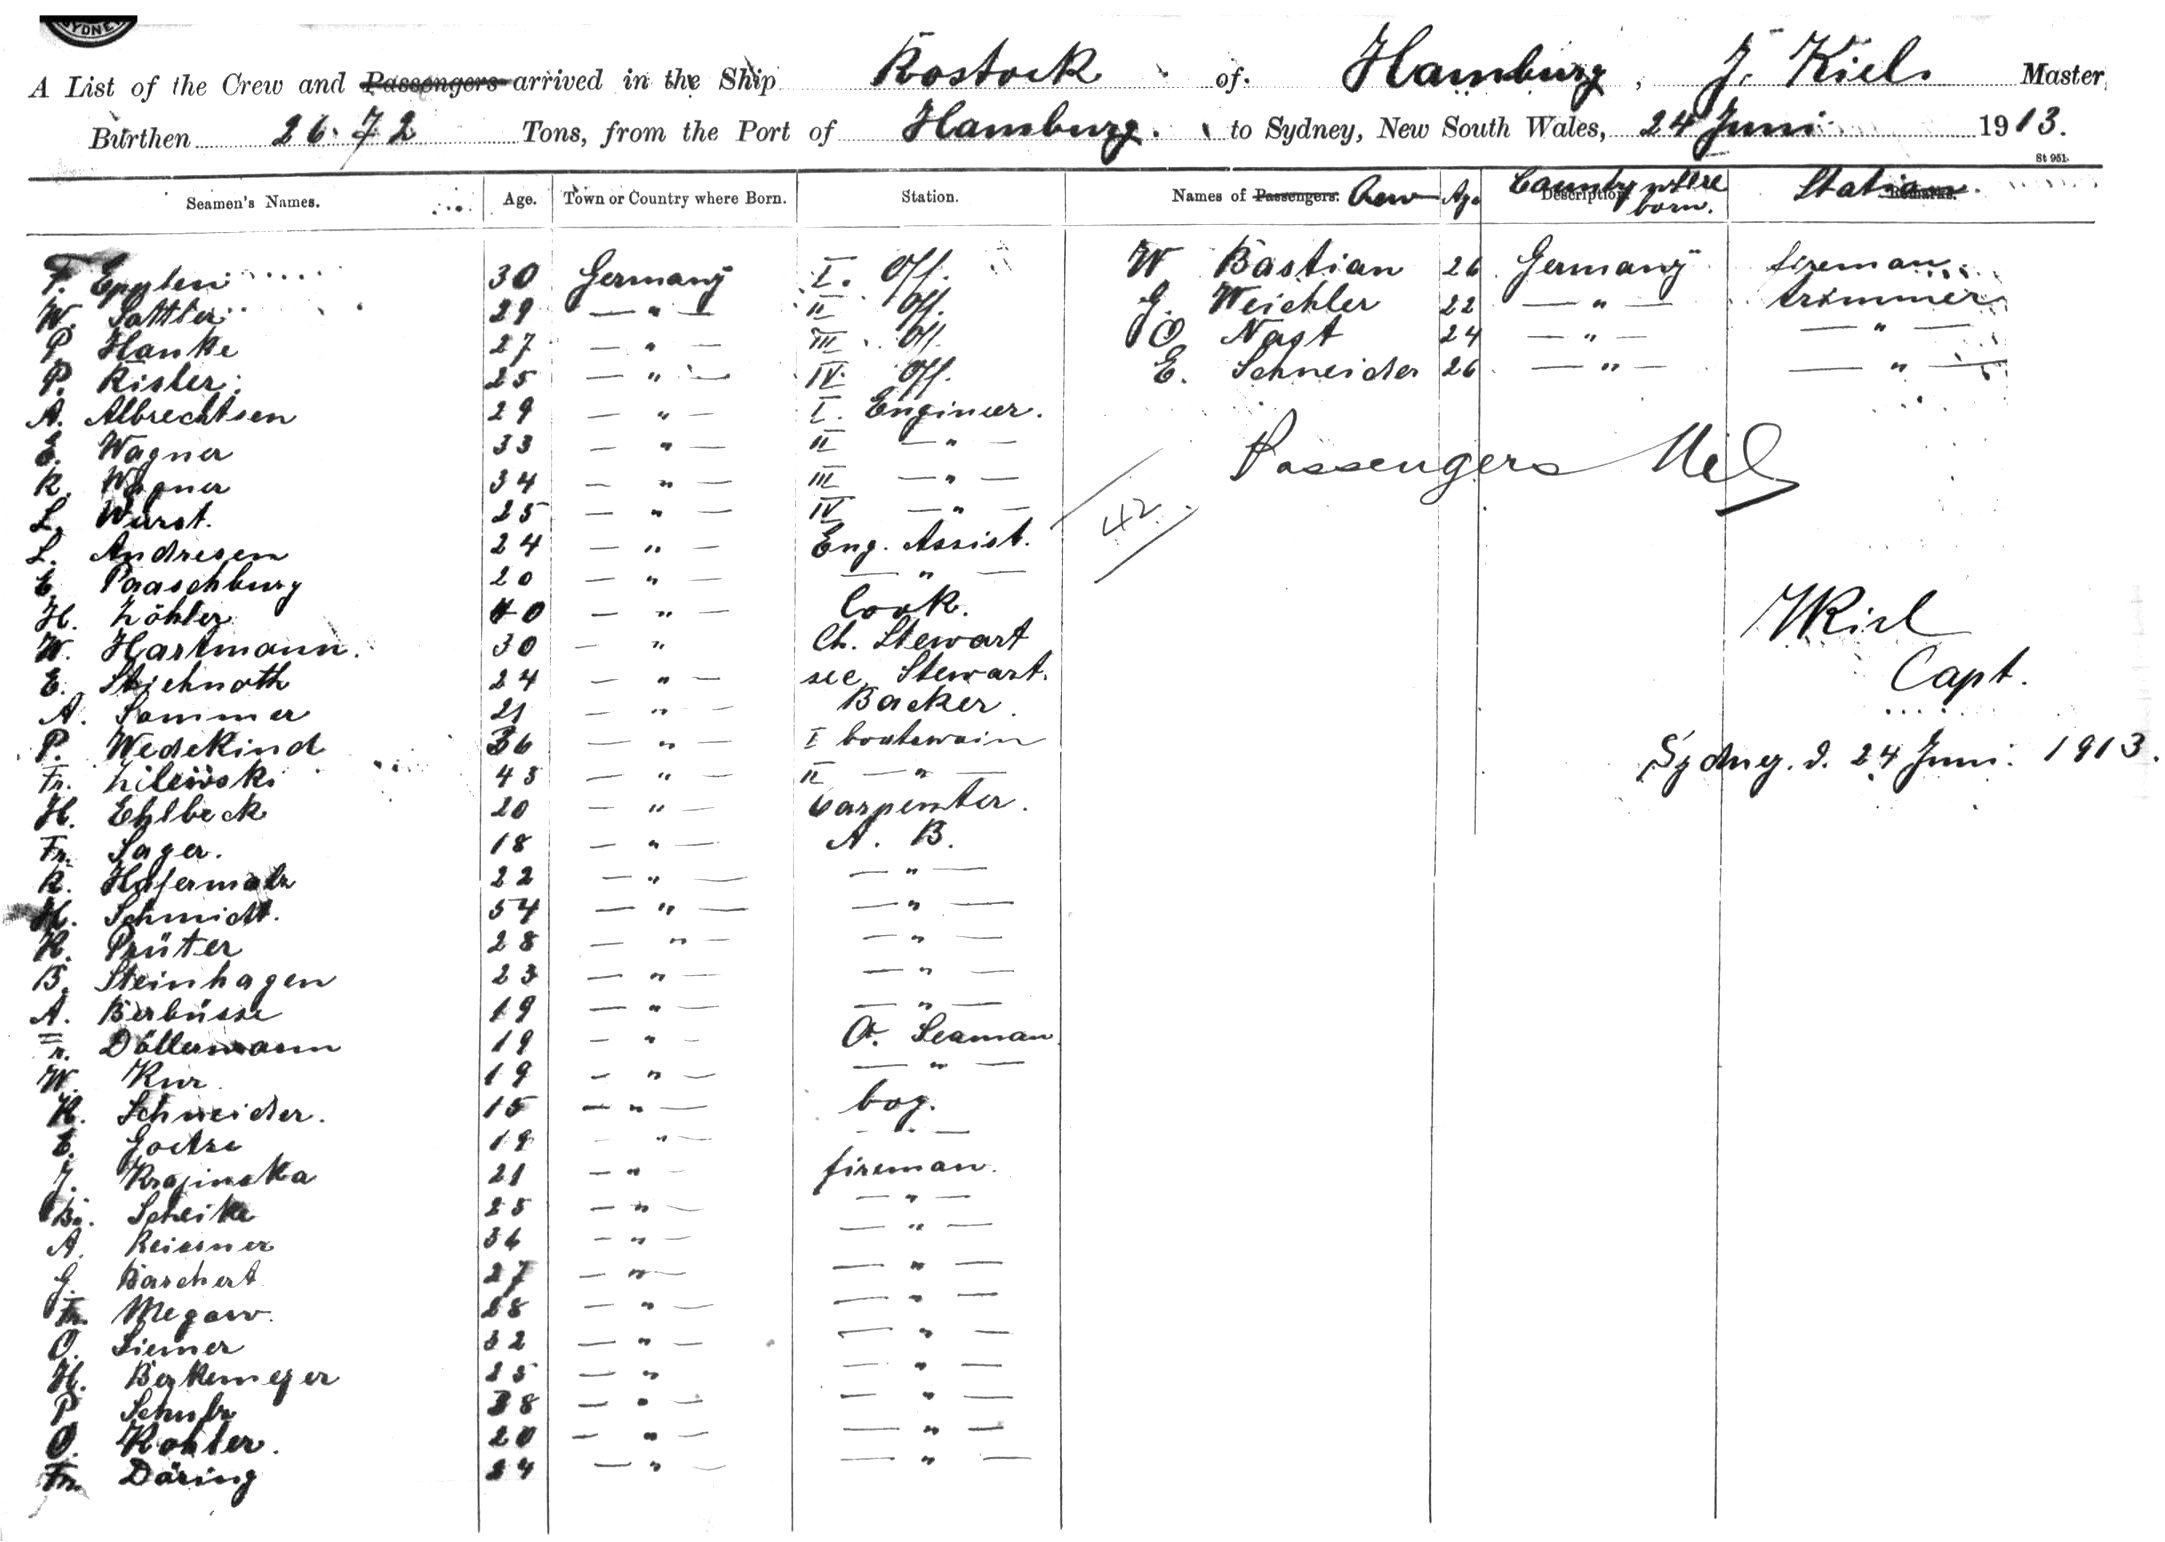 SYDNEY
A List of the Crew and Passengers arrived in the Ship Rostock of Hamburg, J. Kiel. Master,
Burthen 26.72 Tons, from the Port of Hamburg. to Sydney, New South Wales, 24 Juni 1913.
St 951.
Seamen's Names. Age. Town or Country where Born. Station. Names of Passengers. Crew Age Description County where born. Remarks. Station.
F. 30 Germany I. Off. W Bastian 26 Germany fireman
W. Sattler 29 — " — II Off. G. Weichler 22 — " — trimmer
P Hanke 27 — " — III Off. O Nast 24 — " — — " —
P. Risler 25 — " — IV Off. E. Schneider 26 — " — — " —
A. Albrechtsen 29 — " — I. Engineer.
E. Wagner 33 — " — II — " —
R. Wagner 34 — " — III — " —
L. Wurst. 25 — " — IV — " —
L. Andresen 24 — " — Eng. Assist.
E. Paaschburg 20 — " — — " —
H. 40 — " — Cook.
W. Hartmann. 30 — " Ch. Stewart
E. Stichnoth 24 — " — sec. Stewart.
A. Sommer 21 — " — Backer.
P. Wedekind 36 — " — I boatswain
Fr. 43 — " — II — " —
H. Ehlbeck 20 — " — Carpenter.
Fr. Sager. 18 — " — A. B.
R. Hafermalz 22 — " — — " —
H. Schmidt. 54 — " — — " —
H. Prüter 28 — " — — " —
B. Steinhagen 23 — " — — " —
A. Berbüsse 19 — " — — " —
Fr. Döllermann 19 — " — O. Seaman
W. Kur. 19 — " — — " —
K. Schneider. 15 — " — boy.
E. Goetze 19 — " — — " —
J. Krajinska 21 — " — fireman.
Scheike 25 — " — — " —
A. Reissner 36 — " — — " —
G. Baschert 27 — " — — " —
Fr. Megow. 28 — " — — " —
O. Siemer 32 — " — — " —
H. Berkemeyer 25 — " — " —
P Schulz 38 — " — — " —
O. Kohler. 20 — " — — " —
Fr. Däring 24 — " — — " —
Passengers Nil
42
JKiel
Capt.
Sydney. d. 24 Juni. 1913.